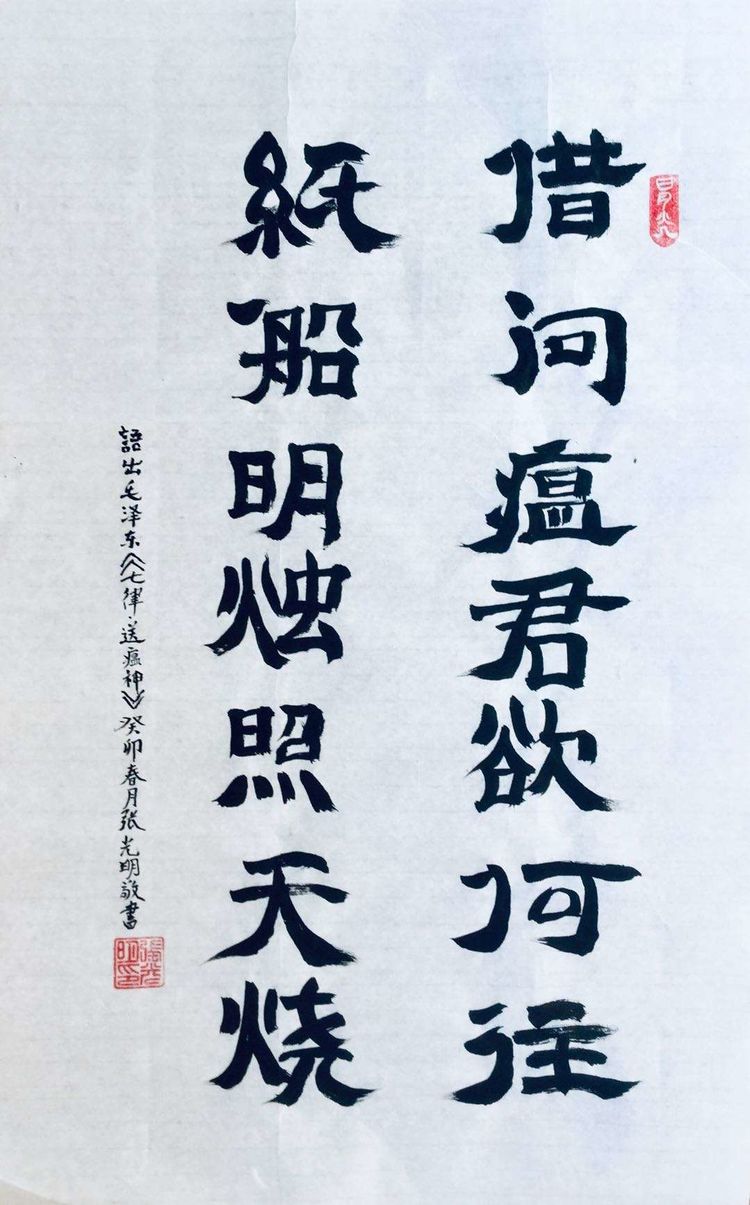 借问瘟君欲何往
紙船明烛照天烧
語出毛泽东《七律·送瘟神》癸卯春月张光明敬書
張光明印